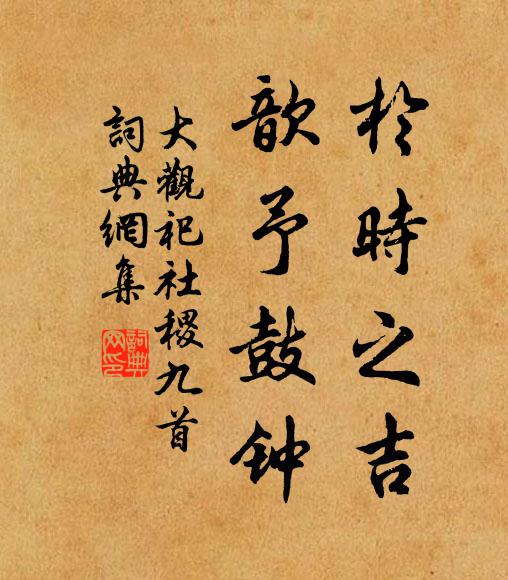 於時之吉
歆予鼓钟
大觀祀社稷九首
詞典網集
詞典
网印